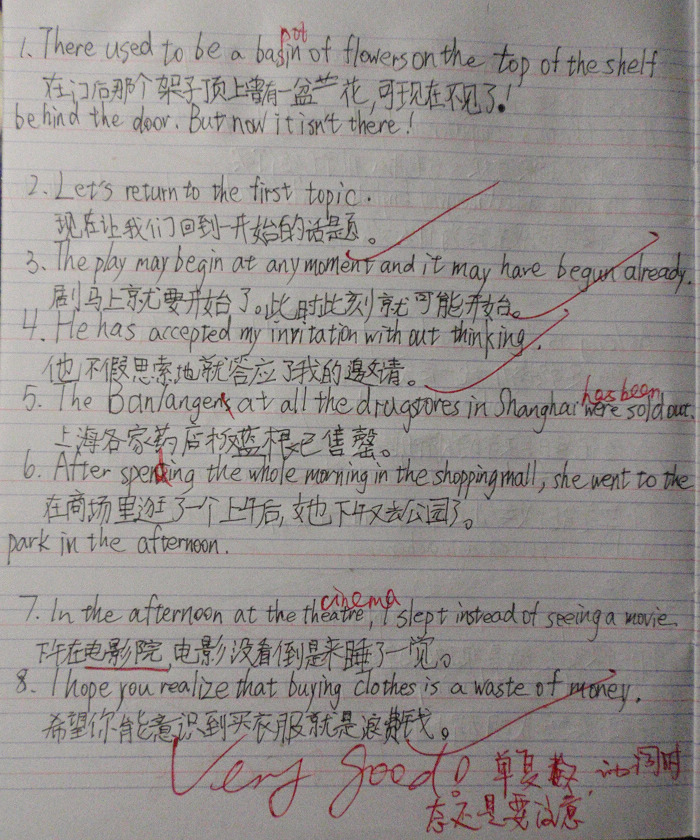 pot
1. There used to be a basin of flowers on the top of the shelf
在门后那个架子顶上曾有一盆兰花,可现在不见了!
behind the door. But now it isn't there!
2. Let's return to the first topic.
现在让我们回到一开始的话题。
3. The play may begin at any moment and it may have begun already.
剧马上就要开始了。此时此刻就可能开始。
4. He has accepted my invitation with out thinking.
他不假思索地就答应了我的邀请。
has been
5. The Banlangens at all the drugstores in Shanghai were sold out.
上海各家药店板蓝根已售罄。
6. After spending the whole morning in the shopping mall, she went to the
在商场里逛了一个上午后,她下午又去公园了。
park in the afternoon.
cinema
7. In the afternoon at the theatre, I slept instead of seeing a movie.
下午在电影院,电影没看倒是来睡了一觉。
8. I hope you realize that buying clothes is a waste of money.
希望你能意识到买衣服就是浪费钱。
Very good! 单复数 动词时
态还是要注意